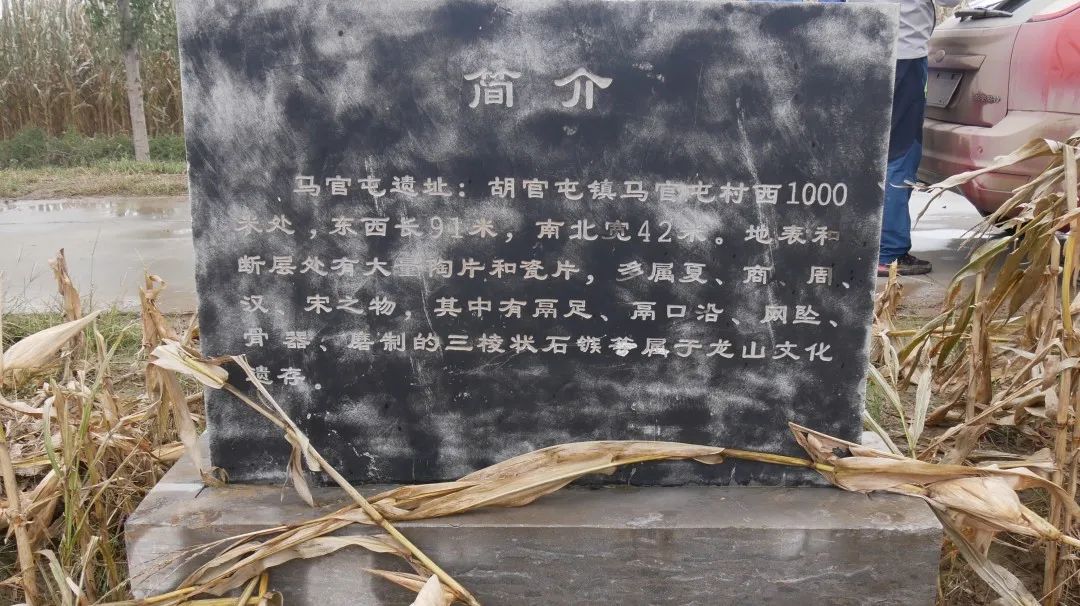 简介
马官屯遗址：胡官屯镇马官屯村西1000
米处，东西长91米，南北宽42米。地表和
断层处有大量陶片和瓷片，多属夏、商、周、
汉、宋之物，其中有鬲足、鬲口沿、网坠、
骨器、磨制的三棱状石镞等属于龙山文化
遗存。